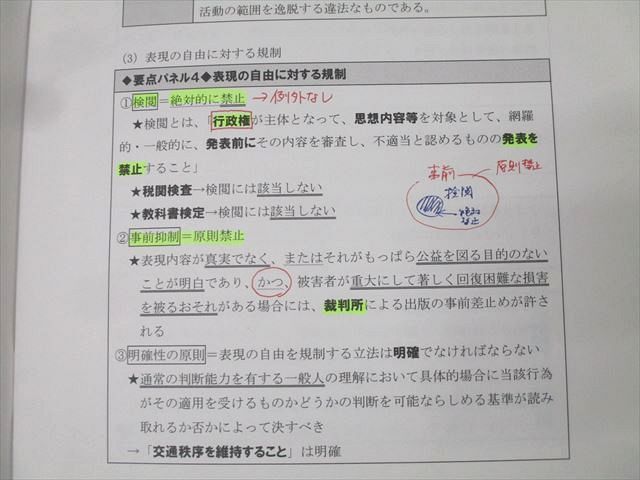 活動の範囲を逸脱する違法なものである。
(3) 表現の自由に対する規制
◆要点パネル4◆表現の自由に対する規制
①検閲＝絶対的に禁止 →例外なし
★検閲とは、「行政権が主体となって、思想内容等を対象として、網羅
的・一般的に、発表前にその内容を審査し、不適当と認めるものの発表を
禁止すること」
事前 原則禁止
★税関検査→検閲には該当しない
検閲
絶対的
禁止
★教科書検定→検閲には該当しない
②事前抑制＝原則禁止
★表現内容が真実でなく、またはそれがもっぱら公益を図る目的のない
ことが明白であり、かつ、被害者が重大にして著しく回復困難な損害
を被るおそれがある場合には、裁判所による出版の事前差止めが許さ
れる
③明確性の原則＝表現の自由を規制する立法は明確でなければならない
★通常の判断能力を有する一般人の理解において具体的場合に当該行為
がその適用を受けるものかどうかの判断を可能ならしめる基準が読み
取れるか否かによって決すべき
→「交通秩序を維持すること」は明確